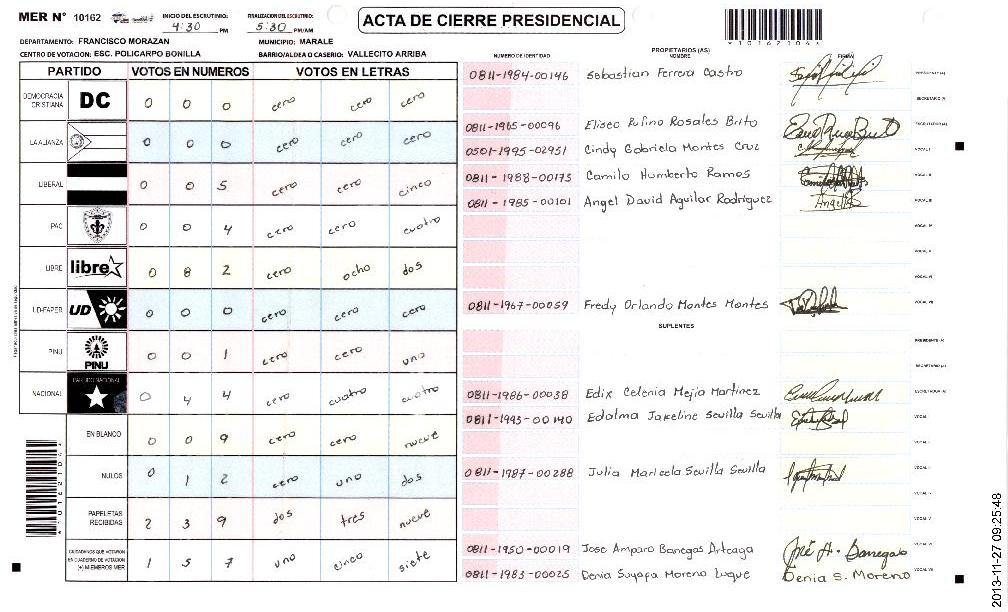 MER N° 10162
INICIO DEL ESCRUTINIO: 4:30 PM
FINALIZACION DEL ESCRUTINIO: 5:30 PM/AM
ACTA DE CIERRE PRESIDENCIAL
*10162104*
DEPARTAMENTO: FRANCISCO MORAZAN MUNICIPIO: MARALE
CENTRO DE VOTACION: ESC. POLICARPO BONILLA BARRIO/ALDEA O CASERIO: VALLECITO ARRIBA
PARTIDO VOTOS EN NUMEROS VOTOS EN LETRAS
DEMOCRACIA CRISTIANA DC 0 0 0 cero cero cero
LA ALIANZA 0 0 0 cero cero cero
LIBERAL 0 0 5 cero cero cinco
PAC 0 0 4 cero cero cuatro
LIBRE libre 0 8 2 cero ocho dos
UD-FAPER UD 0 0 0 cero cero cero
PINU PINU 0 0 1 cero cero uno
NACIONAL PARTIDO NACIONAL 0 4 4 cero cuatro cuatro
EN BLANCO 0 0 9 cero cero nueve
NULOS 0 1 2 cero uno dos
PAPELETAS RECIBIDAS 2 3 9 dos tres nueve
CIUDADANOS QUE VOTARON EN CUADERNO DE VOTACION (+) MIEMBROS MER 1 5 7 uno cinco siete
PROPIETARIOS (AS)
NUMERO DE IDENTIDAD NOMBRE FIRMA
0811-1984-00146 Sebastian Ferrera Castro PRESIDENTE (A)
SECRETARIO (A)
0811-1965-00096 Eliseo Rufino Rosales Brito ESCRUTADOR (A)
0501-1995-02951 Cindy Gabriela Montes Cruz VOCAL I
0811-1988-00173 Camilo Humberto Ramos VOCAL II
0811-1985-00101 Angel David Aguilar Rodríguez VOCAL III
VOCAL IV
VOCAL V
VOCAL VI
0811-1967-00059 Fredy Orlando Montes Montes VOCAL VII
SUPLENTES
PRESIDENTE (A)
SECRETARIO (A)
0811-1986-00038 Edix Celenia Mejia Martinez ESCRUTADOR (A)
0811-1993-00140 Edalma Jakeline Sevilla Sevilla
0811-1987-00288 Julia Maricela Sevilla Sevilla
0811-1950-00019 Jose Amparo Banegas Arteaga José A. Banegas
0811-1983-00025 Denia Suyapa Moreno Luque Denia S. Moreno
2013-11-27 09:25:48